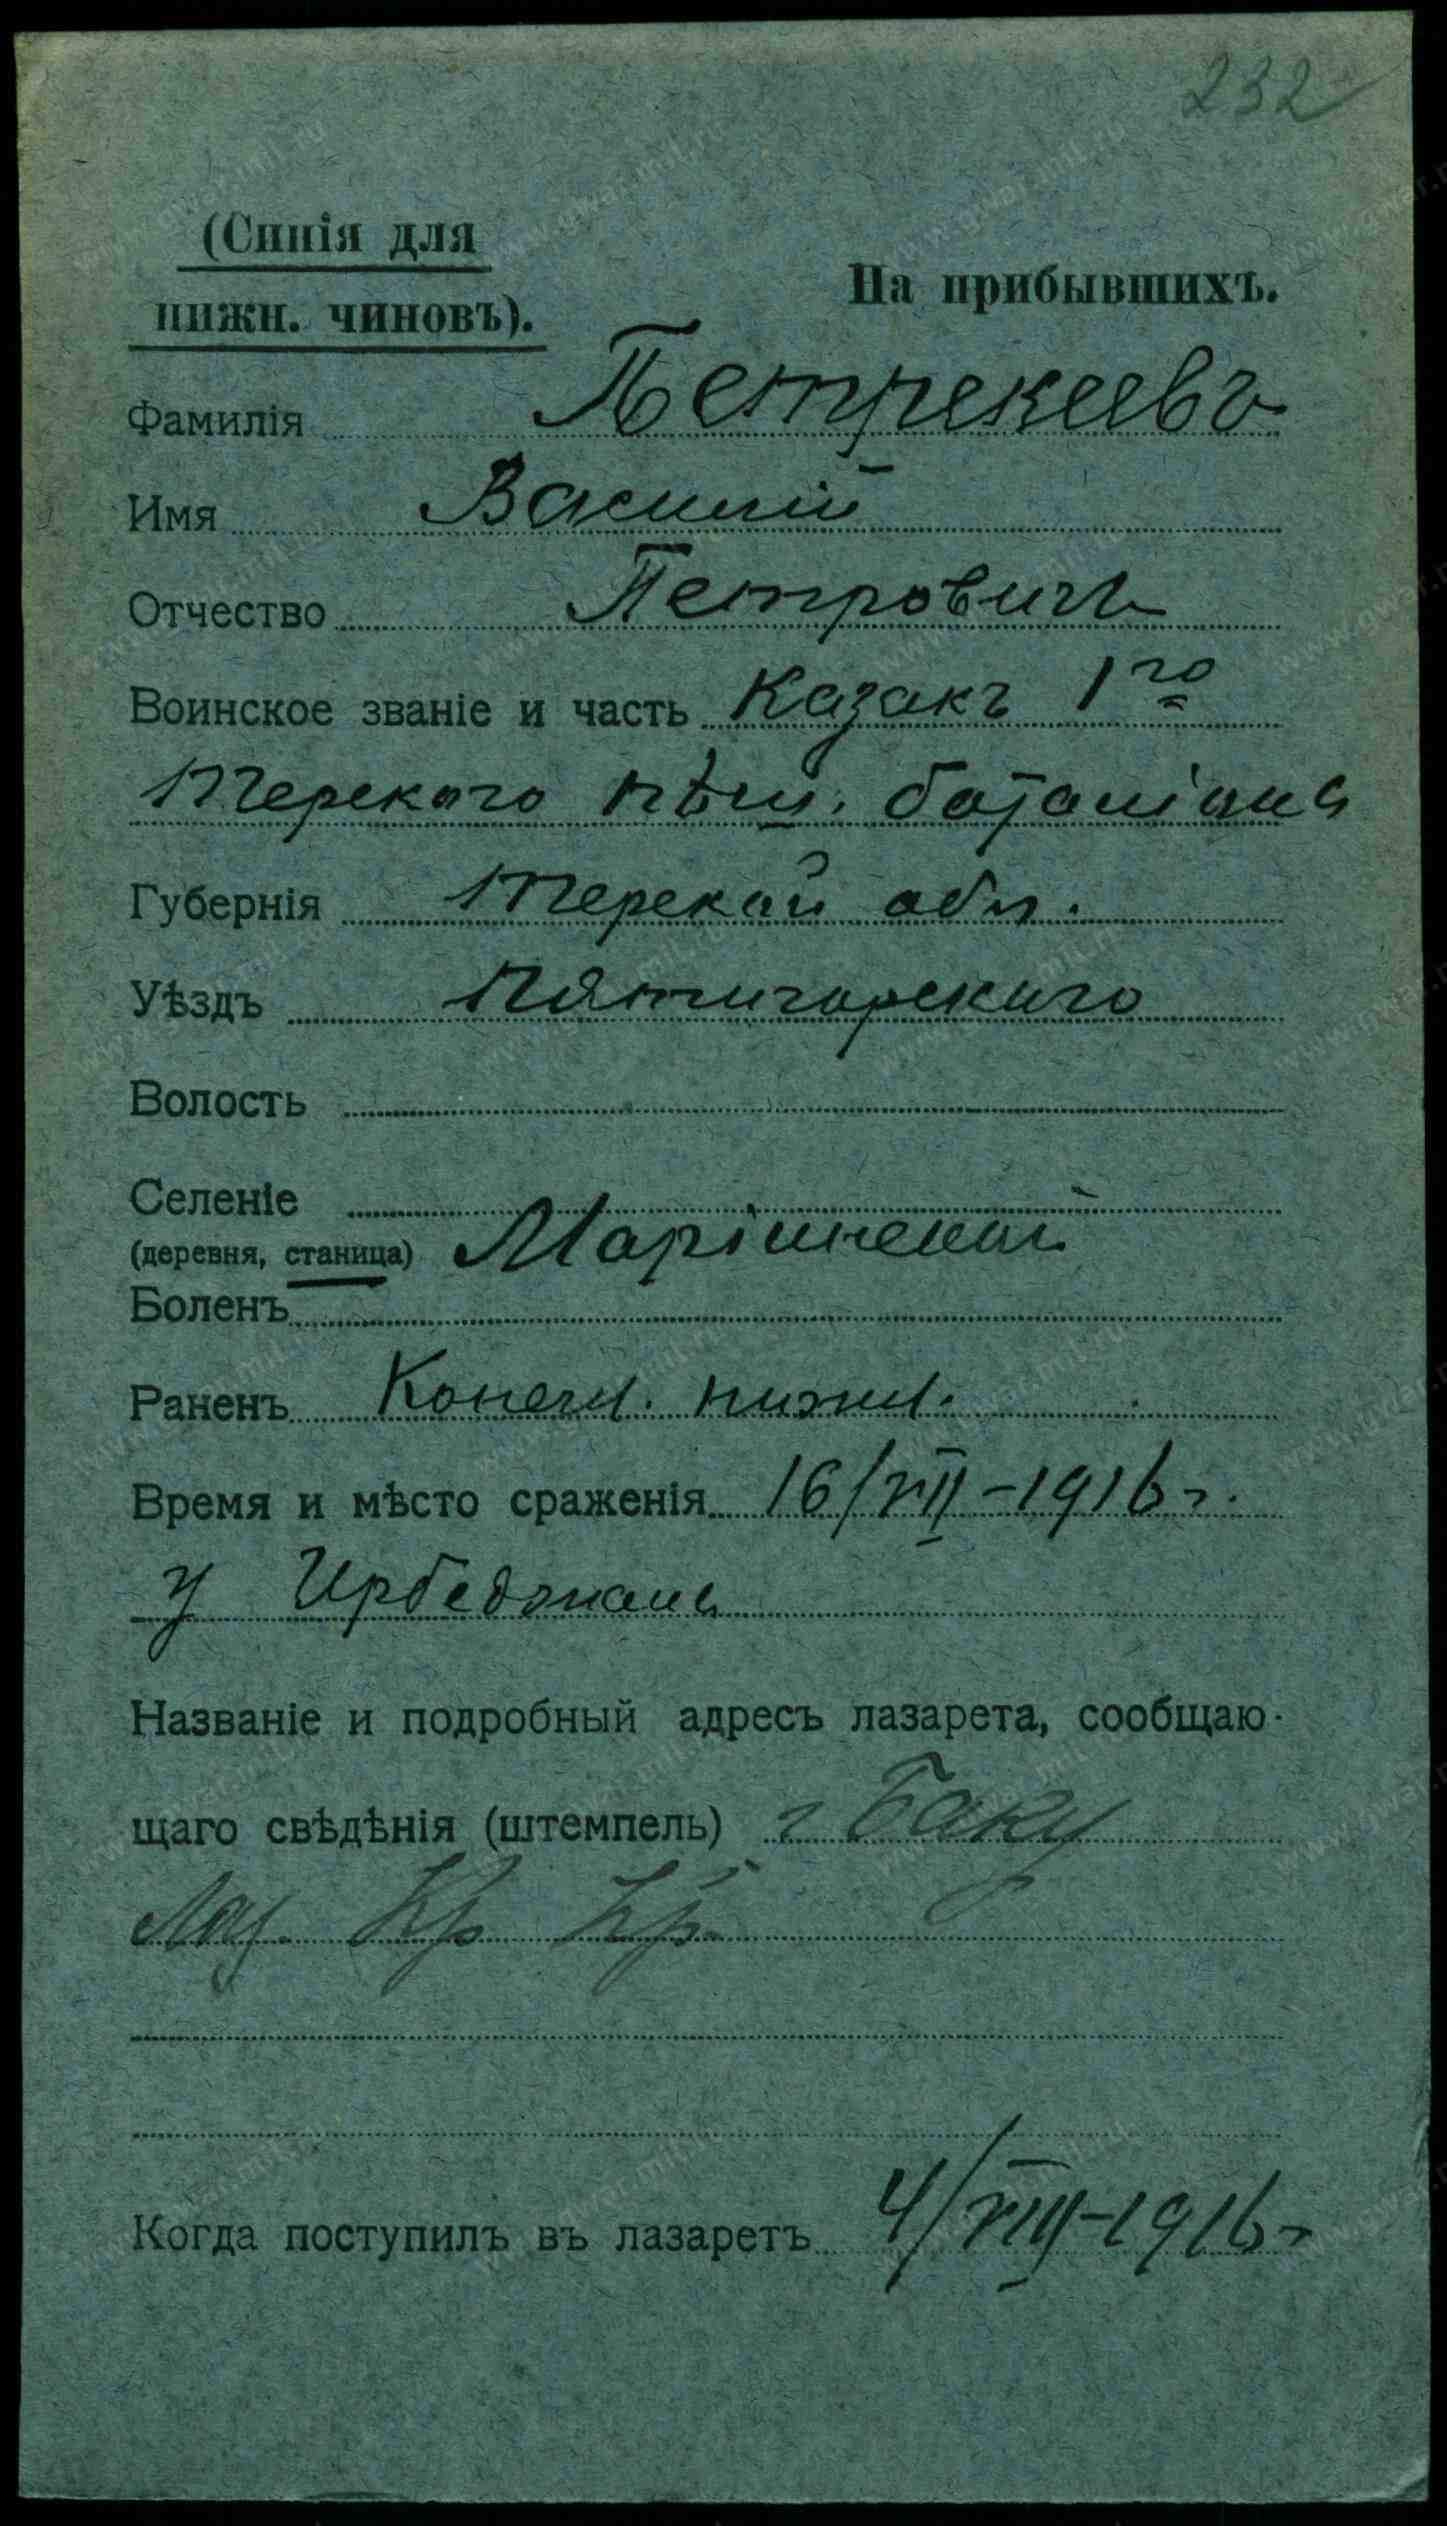 232
(Синія для
нижн. чиновъ).
На прибывшихъ.
Фамилія Петрекеевъ
Имя Василій
Отчество Петровичъ
Воинское званіе и часть Казакъ 1го
Терскаго пѣш. баталіона
Губернія Терской обл.
Уѣздъ Пятигорскаго
Волость
Селеніе
(деревня, станица) Маріинской
Боленъ
Раненъ Конечн. нижн.
Время и мѣсто сраженія 16/VII-1916 г.
у
Названіе и подробный адресъ лазарета, сообщаю-
щаго свѣдѣнія (штемпель) г Баку
Лаз. Кр Кр.
Когда поступилъ въ лазаретъ 4/VIII-1916 г